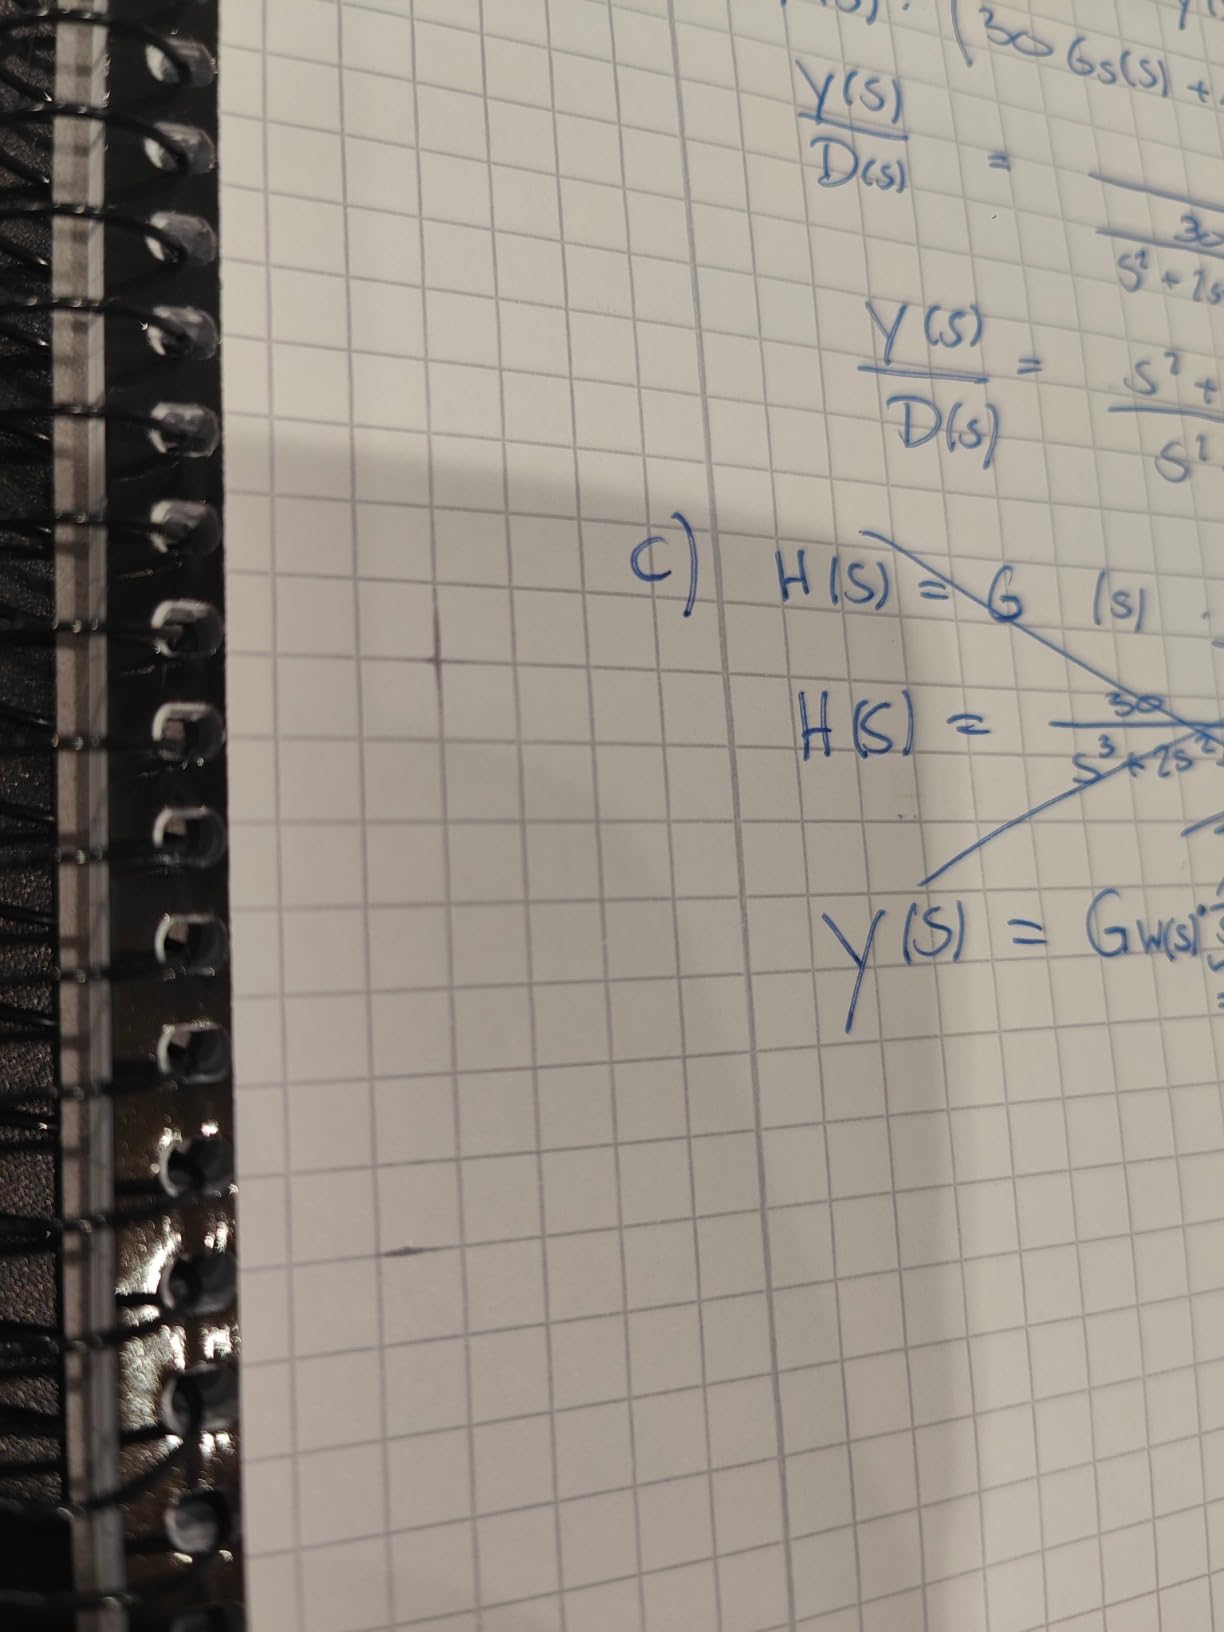 (30 Gs(s) +
Y(s)
D(s)
=
30
s² + 2s
Y(s)
D(s)
=
s² +
s²
C) H(s) = G (s) ·
H(s) =
30
s³ + 2s²
Y(s) = Gw(s) ·